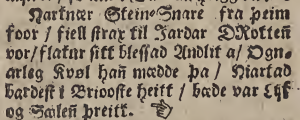 Narknær Stein-Snare fra þeim
foor / fiell strax til Jardar DRotten
vor/flatur sitt blessad Andlit a/ Ogn-
arleg Kvøl hañ mædde þa / Hiartad
bardest i Briooste heitt / bæde var Lijf
og Sælen̄ þreitt. ☜